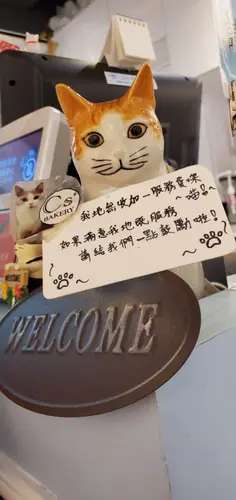 C's
BAKERY
我地無收加一服務費架
喵!
如果滿意我地嘅服務
請給我們一點鼓勵啦!
WELCOME